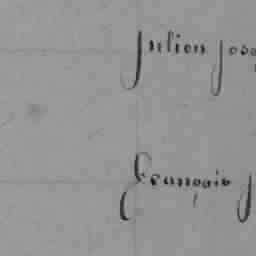 Julien Jose
François J